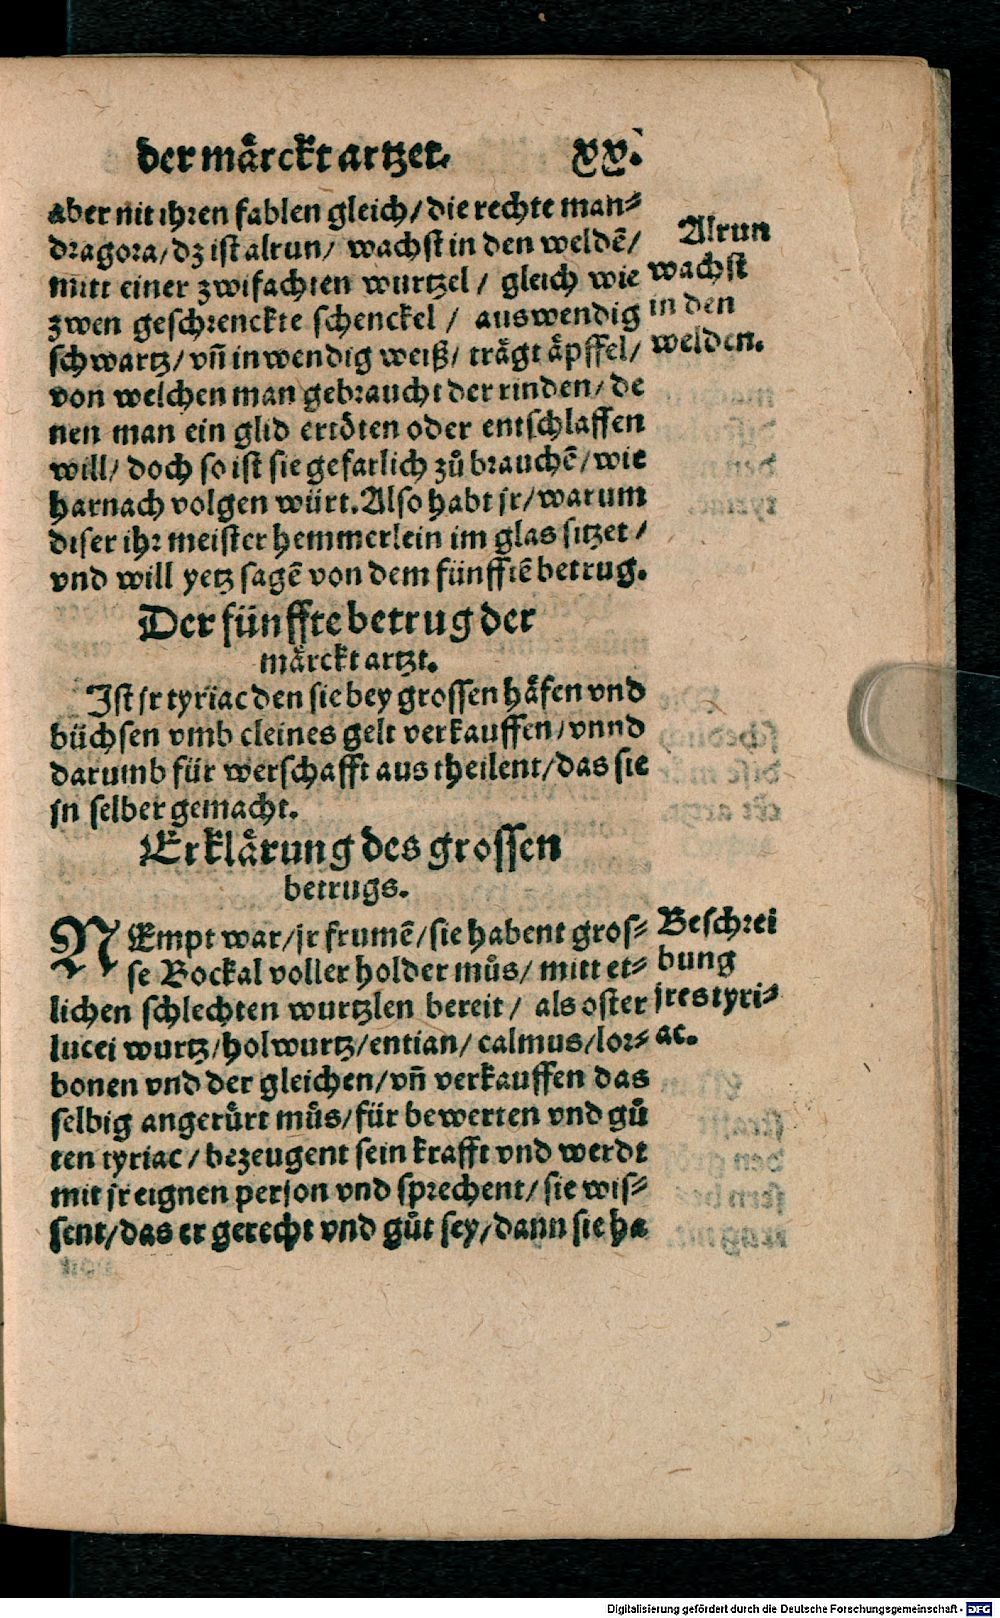 der märckt artzet. XX.
aber nit ihren fablen gleich/ die rechte man⸗
dragora/ dz ist alrun/ wachst in den weldē/
mitt einer zwifachten wurtzel / gleich wie
zwen geschrenckte schenckel / auswendig
schwartz/ vñ inwendig weiß/ trägt äpffel/
von welchen man gebraucht der rinden/ de
nen man ein glid ertöten oder entschlaffen
will/ doch so ist sie gefarlich zů brauchē/ wie
harnach volgen würt. Also habt jr/ warum
diser ihr meister hemmerlein im glas sitzet /
vnd will yetz sagē von dem fünfftē betrug.
Alrun
wachst
in den
welden.
Der fünffte betrug der
märckt artzt.
Ist jr tyriac den sie bey grossen häfen vnd
büchsen vmb cleines gelt verkauffen/ vnnd
darumb für werschafft aus theilent/ das sie
jn selber gemacht.
Erklärung des grossen
betrugs.
NEmpt war/ jr frumē/ sie habent gros⸗
se Bockal voller holder můs/ mitt et⸗
lichen schlechten wurtzlen bereit / als oster
lucei wurtz/ holwurtz/ entian/ calmus/ lor⸗
bonen vnd der gleichen/ vñ verkauffen das
selbig angerůrt můs/ für bewerten vnd gů
ten tyriac / bezeugent sein krafft vnd werdt
mit jr eignen person vnd sprechent/ sie wis⸗
sent/ das er gerecht vnd gůt sey/ dann sie ha
Beschrei
bung
jres tyri⸗
ac.
Digitalisierung gefördert durch die Deutsche Forschungsgemeinschaft - DFG